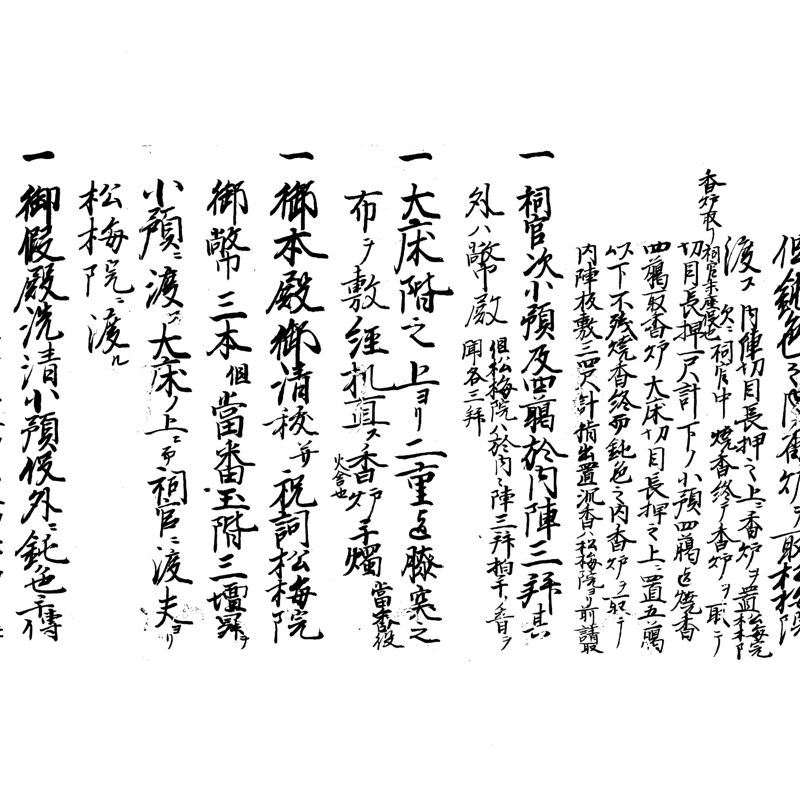 渡ス 内陣切目長押之上ニ香炉ヲ置松梅院
次ニ祠官中 焼香終テ香炉ヲ取テ
切目長押一尺計下ノ小預四﨟迄焼香
四﨟取香炉大床切目長押之上ニ置五﨟
以下不残焼香終而鈍色之内香炉ヲ取テ
内陣板敷三四尺計指出置沉香ハ松梅院ヨリ前請取
一 祠官次小預及四﨟於内陣三拜其
外ハ幣殿 但松梅院ハ於内々陣三拜拍手ノ音ヲ
聞各三拜
一 大床階之上ヨリ二重迄膝突之
布ヲ敷経机直ス香炉手燭 當番役
火舎也
一 御本殿御清祓并祝詞松梅院
御幣 三本 但當番玉階三壇昇テ
小預ニ渡ス大床ノ上ニ而祠官ニ渡夫ヨリ
松梅院ニ渡ル
一 御假殿洗清小預役外ニ鈍色